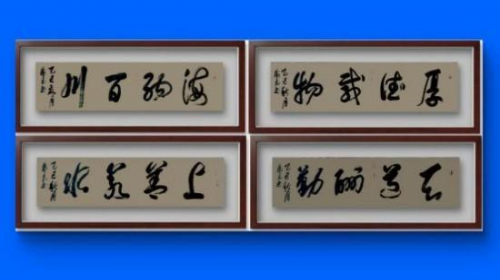 海纳百川
厚德载物
上善若水
天道酬勤